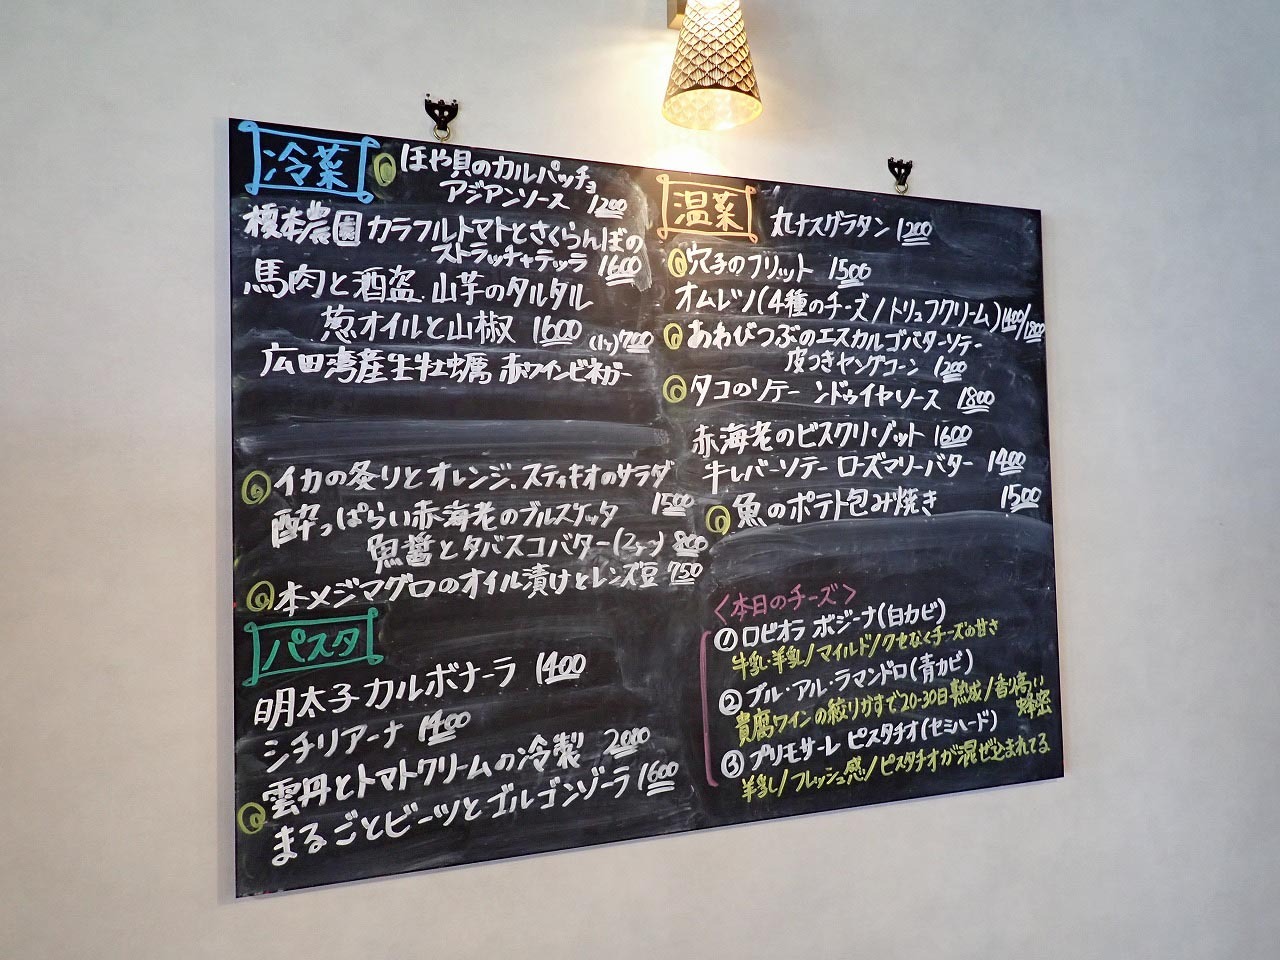 冷菜
ほや貝のカルパッチョ
アジアンソース 1200
榎本農園 カラフルトマトとさくらんぼの
ストラッチャテッラ 1600
馬肉と酒盗.山芋のタルタル
葱オイルと山椒 1600
(1ヶ)700
広田湾産生牡蠣 赤ワインビネガー
イカの炙りとオレンジ.スティッキオのサラダ
1500
酔っぱらい赤海老のブルスケッタ
魚醤とタバスコバター(2ヶ〜) 800
本メジマグロのオイル漬けとレンズ豆 750
パスタ
明太子カルボナーラ 1400
シチリアーナ 1400
雲丹とトマトクリームの冷製 2000
まるごとビーツとゴルゴンゾーラ 1600
温菜
丸ナスグラタン 1200
穴子のフリット 1500
オムレツ(4種のチーズ/トリュフクリーム)1400/1800
あわびつぶのエスカルゴバターソテー
皮つきヤングコーン 1200
タコのソテー ンドゥイヤソース 1800
赤海老のビスクリゾット 1600
牛レバーソテー ローズマリーバター 1400
魚のポテト包み焼き 1500
〈本日のチーズ〉
① ロビオラ ボジーナ(白カビ)
牛乳・羊乳/マイルド/クセなくチーズの甘さ
② ブル・アル・ラマンドロ(青カビ)
貴腐ワインの絞りかすで20-30日熟成/香り高い
蜂蜜
③ プリモサーレ ピスタチオ(セミハード)
羊乳/フレッシュ感/ピスタチオが混ぜ込まれてる